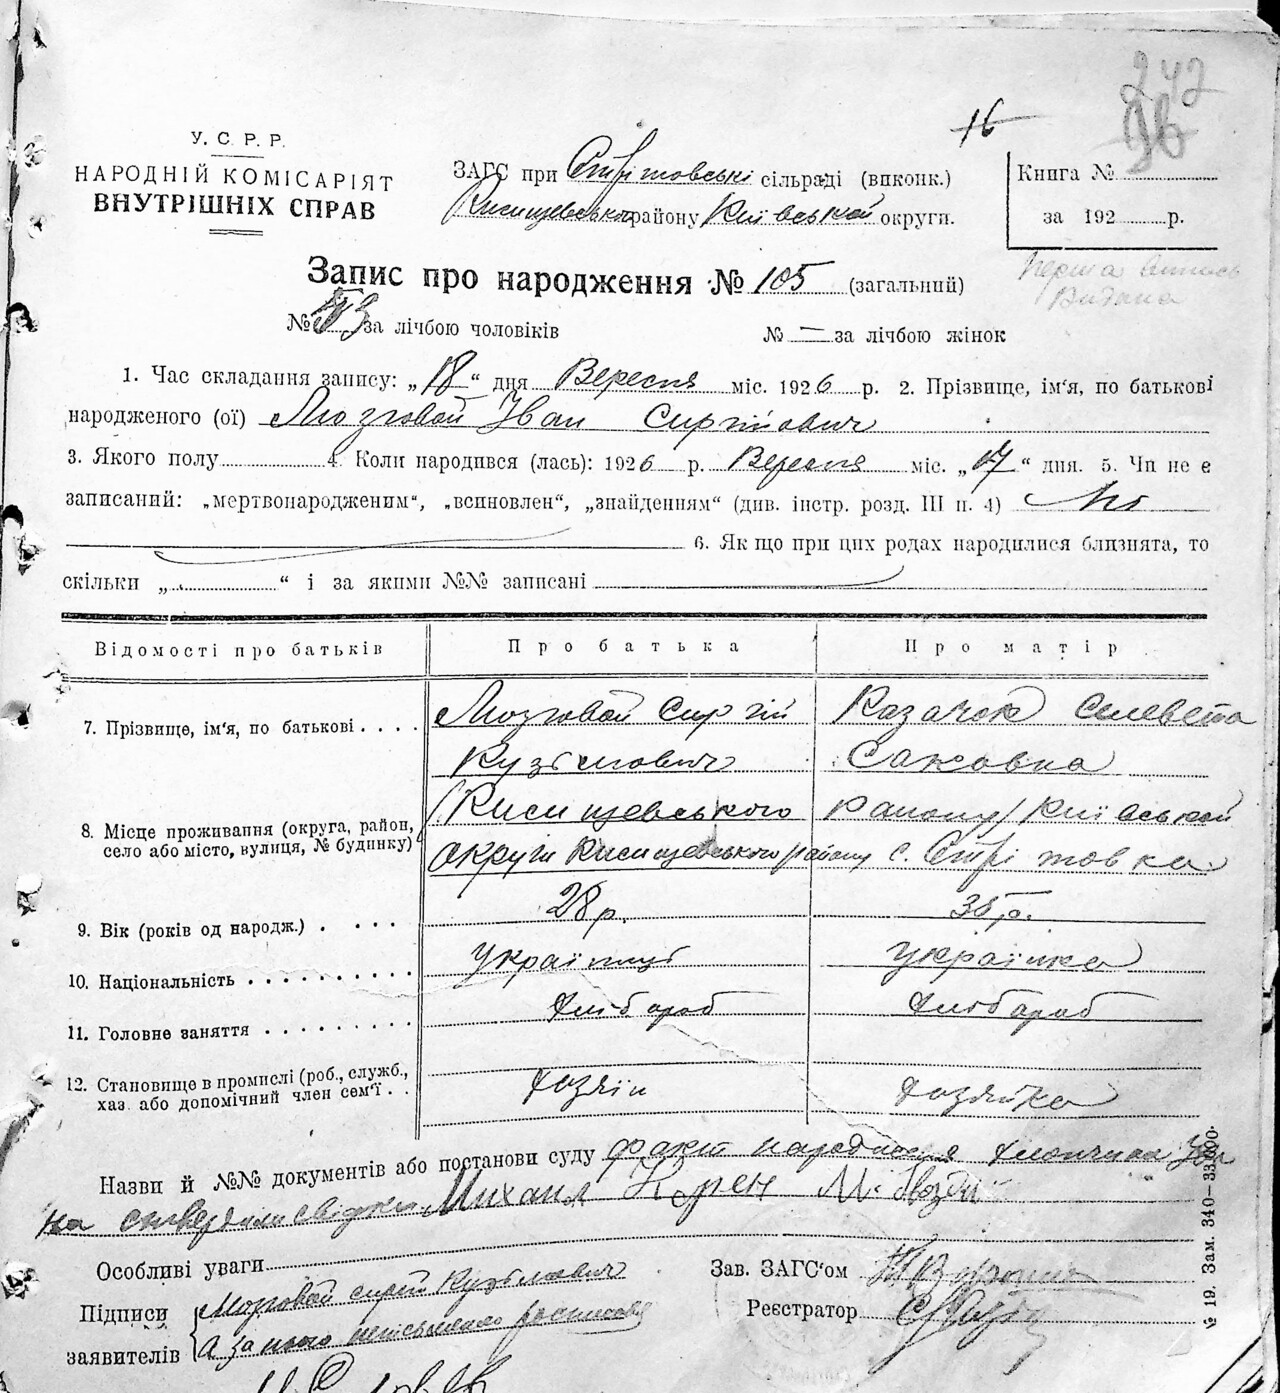 242
16
У. С. Р. Р.
НАРОДНІЙ КОМІСАРІЯТ
ВНУТРІШНІХ СПРАВ
ЗАГС при Стрітовські сільраді (виконк.)
району Київськой округи.
Книга №
за 192 р.
Перша випись
Видана
Запис про народження № 105 (загальний)
№ 53 за лічбою чоловіків
№ — за лічбою жінок
1. Час складання запису: „18“ дня Вересня міс. 1926 р. 2. Прізвище, ім'я, по батькові
народженого (ої) Мозговой Іван Сиргійович
3. Якого полу 4. Коли народився (лась): 1926 р. Вересня міс. „17“ дня. 5. Чи не є
записаний: „мертвонародженим“, „всиновлен“, „знайденням“ (див. інстр. розд. III п. 4) Ні
6. Як що при цих родах народилися близнята, то
скільки „ “ і за якими №№ записані
Відомості про батьків
Про батька
Про матір
7. Прізвище, ім'я, по батькові
Мозговой Сиргій
Кузьмович
Казачок Селевета
Саковна
8. Місце проживання (округа, район,
село або місто, вулиця, № будинку)
району/Київськой
округи району с. Стрітовка
9. Вік (років од народж.)
28 р.
10. Національність
українці
українка
11. Головне заняття
хлібороб
хлібороб
12. Становище в промислі (роб., служб.,
хаз. або допомічний член сем'ї
хозяїн
хозяйка
Назви й №№ документів або постанови суду факт народження хлопчика Іва
на ствердили свідки Михаил Крен М.
Особливі уваги
Зав. ЗАГС'ом
Підписи
заявителів
Мозговой Сиргій Кузьмович
а за нього неписьменого росписався
Реєстратор
№ 19. Зам. 340—33.000.